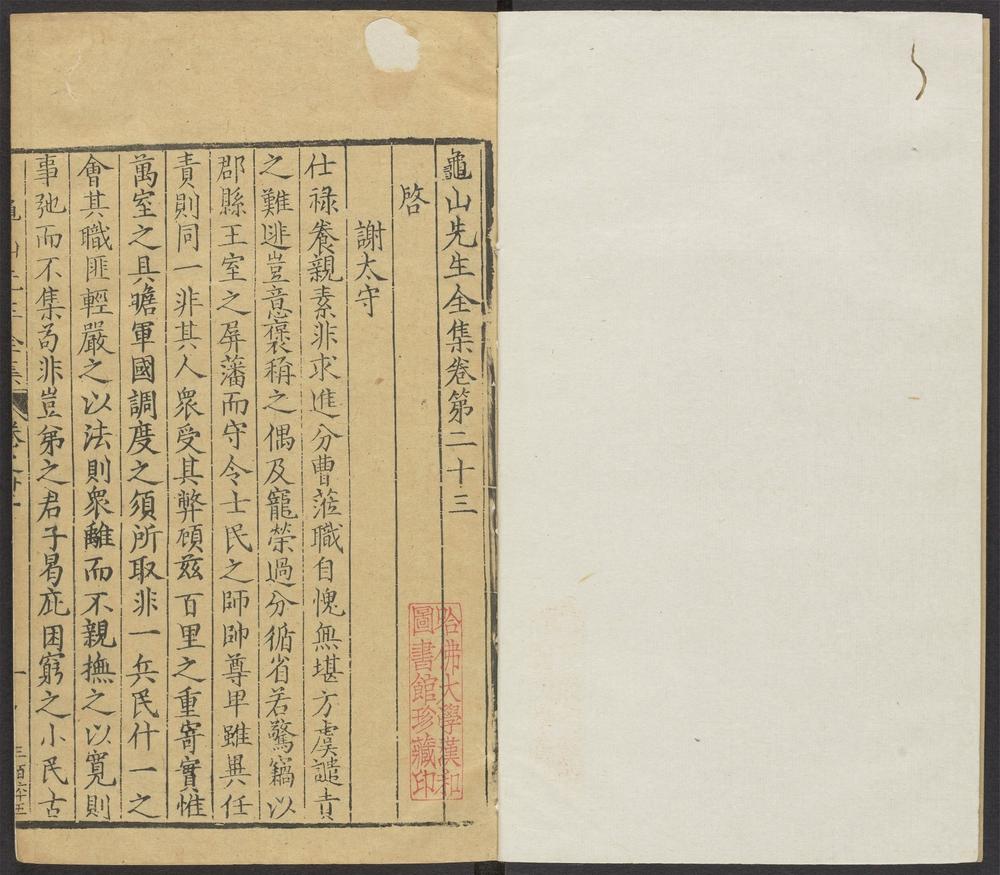 龜山先生全集卷第二十三
啓
謝太守
仕禄養親素非求進分曹蒞職自愧無堪方虞譴責
之難逃豈意襃稱之偶及寵榮過分循省若驚竊以
郡縣王室之屏藩而守令士民之師帥尊卑雖異任
責則同一非其人衆受其弊顧兹百里之重寄實惟
萬室之具瞻軍國調度之須所取非一兵民什一之
會其職匪輕嚴之以法則衆離而不親撫之以寬則
事弛而不集苟非豈弟之君子曷庇困窮之小民古
哈佛大學漢和
圖書館珍藏印